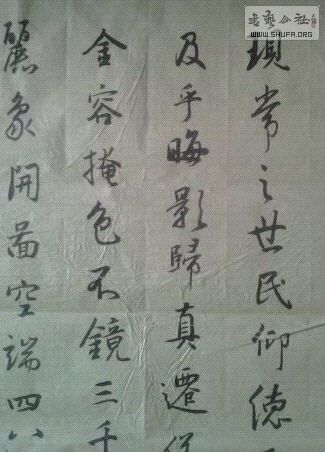 現常之世民仰德
及乎晦影歸真遷
金容掩色不鏡三千
麗象開圖空端四八
書藝公社
WWW.SHUFA.ORG